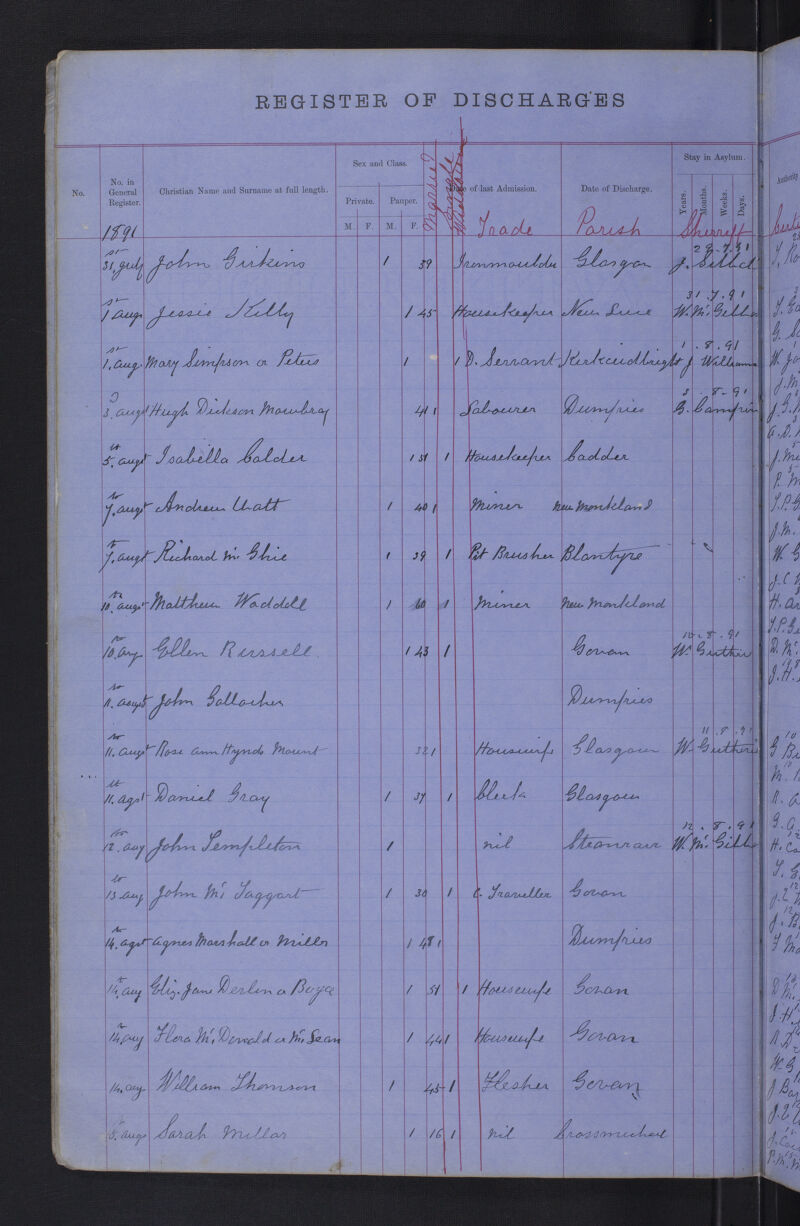 REGISTER OF DISCHARGES
No.
No. in General Register.
Christian Name and Surname at full length.
Sex and Class.
Private.
Pauper.
M. F. M. F.
Married
Single
Date of last Admission.
Date of Discharge.
Stay in Asylum.
Years. Months. Weeks. Days.
Authority
1891 Trade Parish Sherriff
29.7.91
31st July John Girkins 1 39 Ironmoulder Glasgow
31.7.91
1st Aug. Jessie Kelly 1 45 Housekeeper New Luce W. Mc. Gibbon
1.8.91
1st. aug. Mary Simpson or Peters 1 1 D. Servant Kirkcudbright J Williams
3.8.91
3. augst Hugh Dickson Mowbray 41 1 Labourer Dumfries
5. augt Isabella Calder 1 51 1 Housekeeper Cadder
7. augt Andrew Watt 1 40 1 Miner New Monkland
7. augt Richard Mc Ghie 1 39 1 Pit Brusher Blantyre
10. augst Matthew Waddell 1 60 1 Miner New Monkland
10.8.91
10. Aug Ellen Russell 1 43 1 Govan W. Guthrie
11. augst John Gallocher Dumfries
11.8.91
11. augst Rose Ann Hynds Mount 32 1 Housewife Glasgow W. Guthrie
11. agst Daniel Gray 1 37 1 Clerk Glasgow
12.8.91
12. aug John Templeton 1 nil Stranraer W. Mc. Gibb
13. aug John Mc Taggart 1 30 1 C. Traveller Govan
14. agst Agnes Marshall or Miller 1 48 1 Dumfries
14. aug Eliz. Jane Devlin or Boyce 1 51 1 Housewife Govan
14. aug Flora Mc. Donald or Mc. Lean 1 44 1 Housewife Govan
14. aug William Thomson 1 45 1 Flesher Govan
aug Sarah Millar 1 16 1 nil Crossmichael